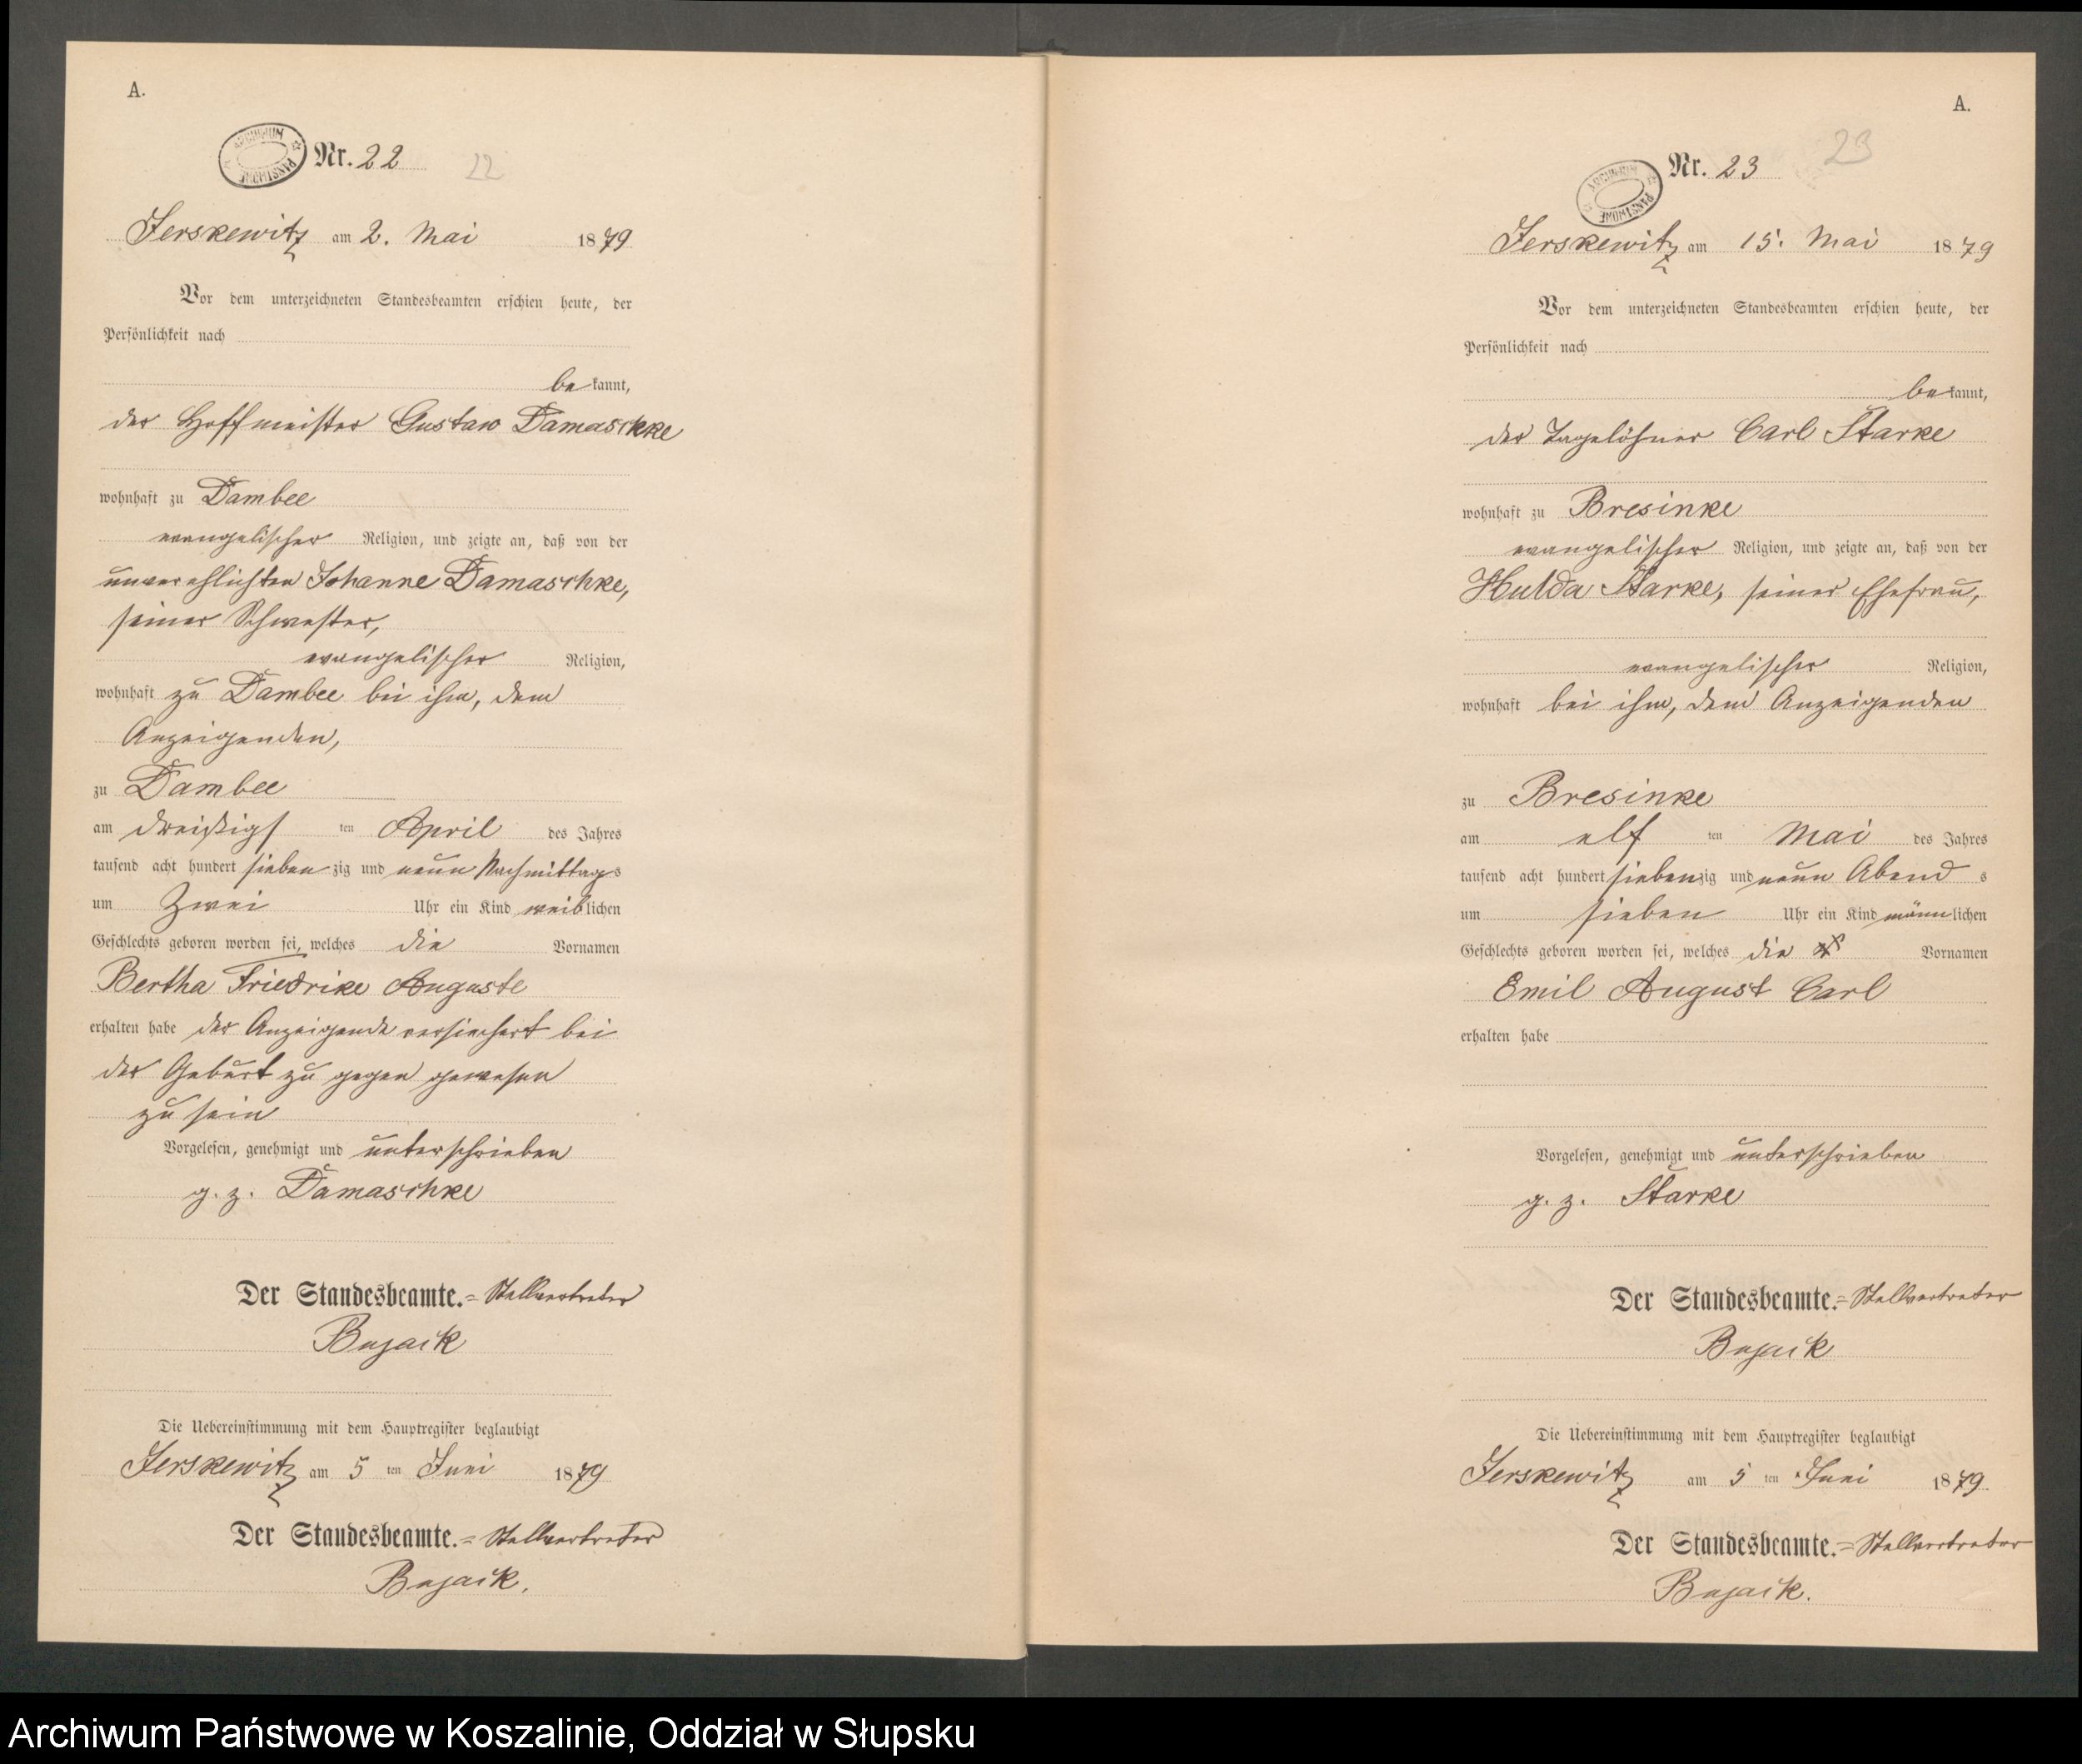 A.
ARCHIWUM PAŃSTWOWE
Nr. 22
22
Jerskewitz am 2. Mai 1879
Vor dem unterzeichneten Standesbeamten erschien heute, der
Persönlichkeit nach
bekannt,
der Hoffmeister Gustav Damaschke
wohnhaft zu Dambee
evangelischer Religion, und zeigte an, daß von der
unverehlichten Johanne Damaschke,
seiner Schwester,
evangelischer Religion,
wohnhaft zu Dambee bei ihm, dem
Anzeigenden,
zu Dambee
am dreißigsten April des Jahres
tausend acht hundert siebenzig und neun Nachmittags
um Zwei Uhr ein Kind weiblichen
Geschlechts geboren worden sei, welches die Vornamen
Bertha Friedrike Auguste
erhalten habe der Anzeigende versichert bei
der Geburt zu gegen gewesen
zu sein
Vorgelesen, genehmigt und unterschrieben
g. z. Damaschke
Der Standesbeamte.= Stellvertreter
Die Uebereinstimmung mit dem Hauptregister beglaubigt
Jerskewitz am 5 ten Juni 1879
Der Standesbeamte.= Stellvertreter
A.
ARCHIWUM PAŃSTWOWE
Nr. 23
23
Jerskewitz am 15. Mai 1879
Vor dem unterzeichneten Standesbeamten erschien heute, der
Persönlichkeit nach
bekannt,
der Tagelöhner Carl Starke
wohnhaft zu Bresinke
evangelischer Religion, und zeigte an, daß von der
Hulda Starke, seiner Ehefrau,
evangelischer Religion,
wohnhaft bei ihm, dem Anzeigenden
zu Bresinke
am elf ten Mai des Jahres
tausend acht hundert siebenzig und neun Abend s
um sieben Uhr ein Kind männlichen
Geschlechts geboren worden sei, welches die Vornamen
Emil August Carl
erhalten habe
Vorgelesen, genehmigt und unterschrieben
g. z. Starke
Der Standesbeamte.= Stellvertreter
Die Uebereinstimmung mit dem Hauptregister beglaubigt
Jerskewitz am 5 ten Juni 1879
Der Standesbeamte.= Stellvertreter
Archiwum Państwowe w Koszalinie, Oddział w Słupsku